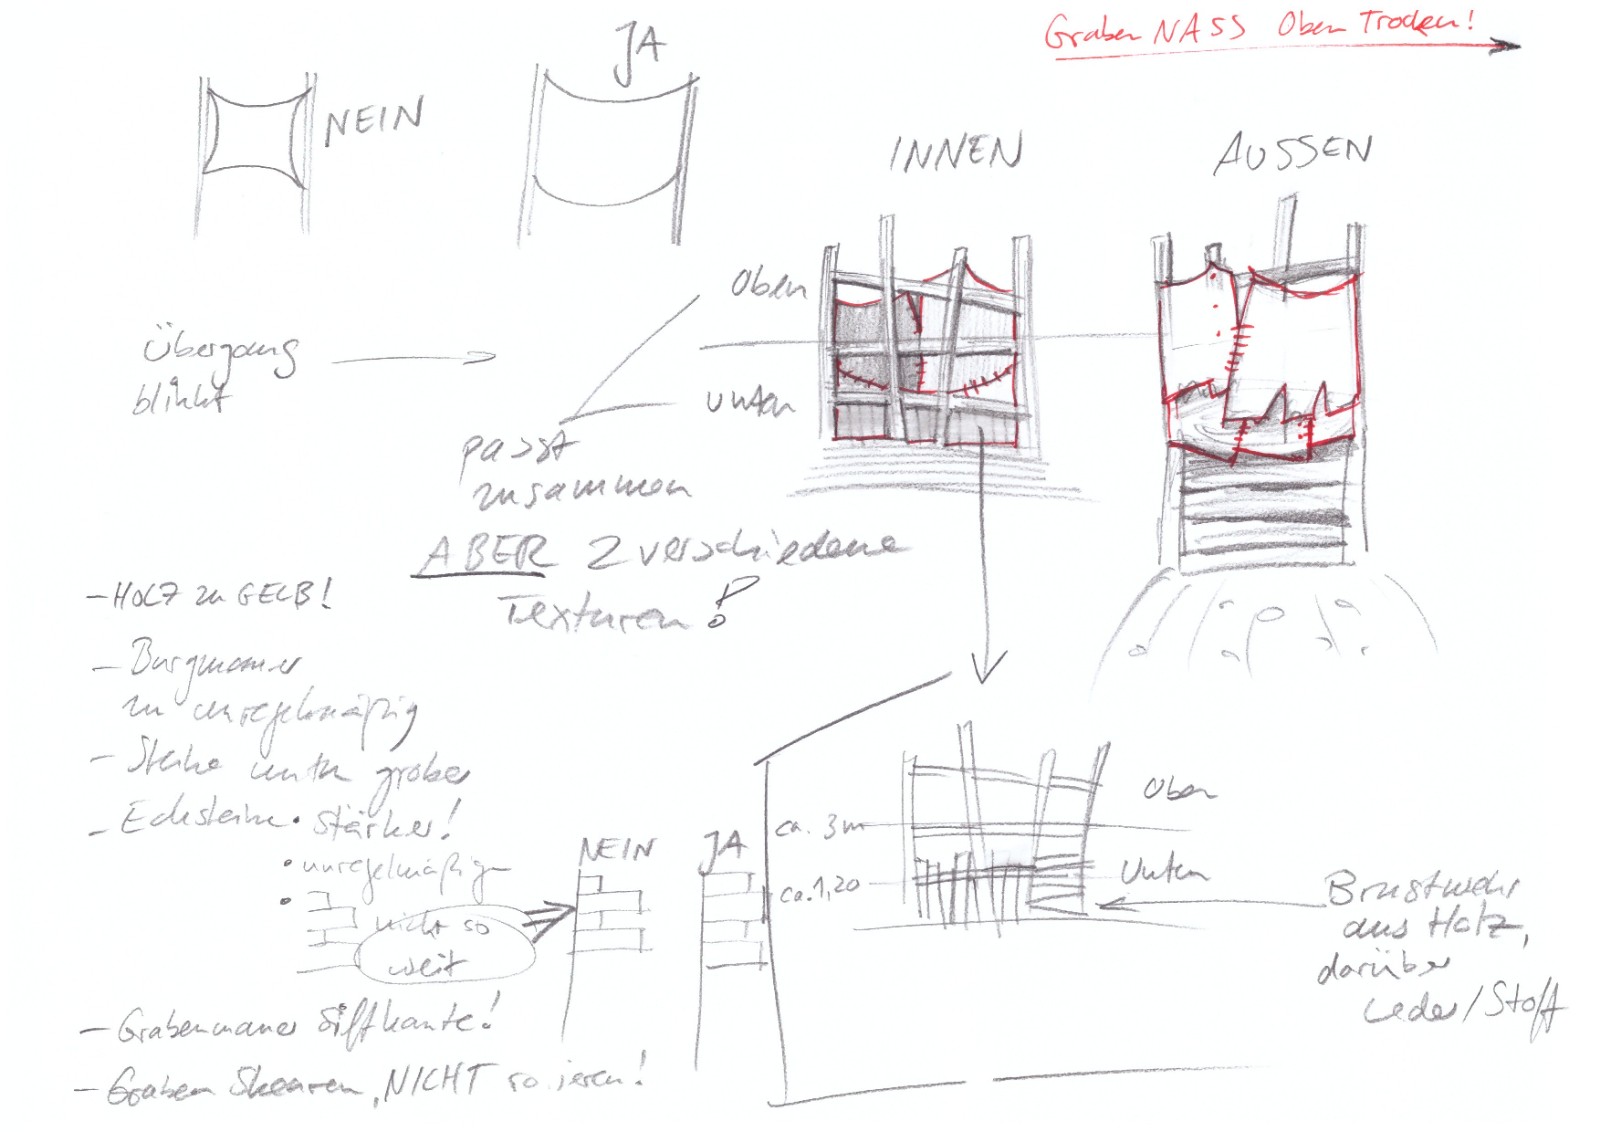 Graben NASS Oben Trocken!
JA
NEIN
INNEN
AUSSEN
Oben
Übergang
blinkt
unten
passt
zusammen
ABER 2 verschiedene
Texturen!
- HOLZ zu GELB!
- Burgmauer
zu unregelmäßig
- Steine unten grober
- Ecksteine • Stärker!
• unregelmäßig
• nicht so
weit
NEIN
JA
ca. 3m
Oben
ca. 1,20
Unten
Brustwehr
aus Holz,
darüber
Leder/Stoff
- Grabenmauer Siffkante!
- Graben NICHT